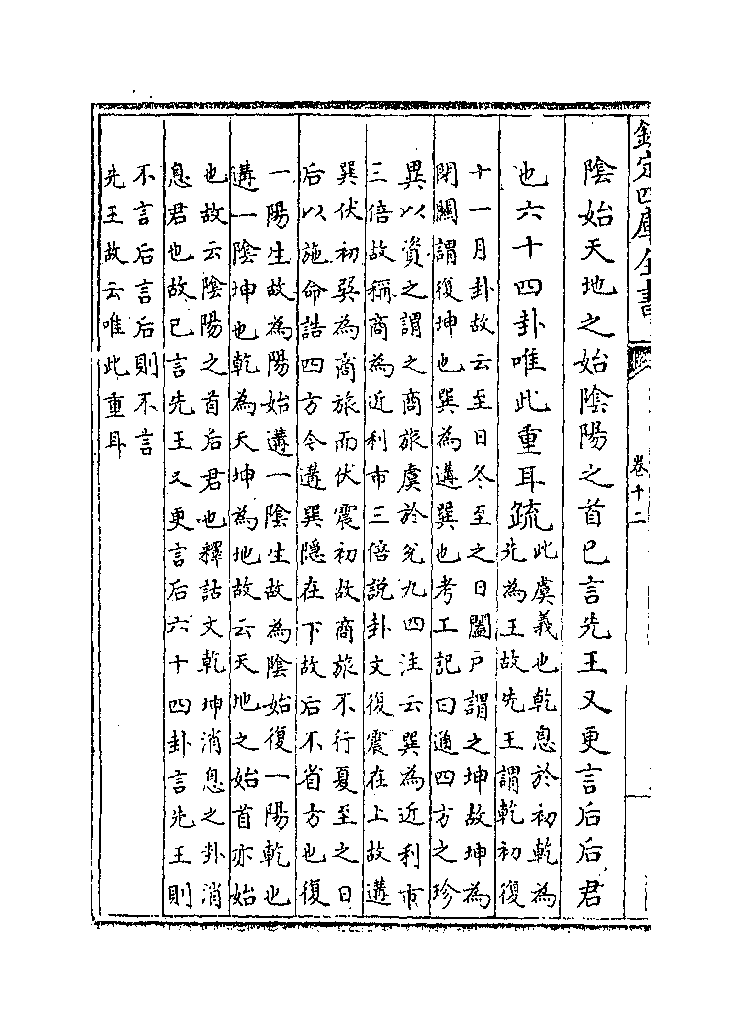 欽定四庫全書
卷十二
陰始天地之始陰陽之首已言先王又更言后后君
也六十四卦唯此重耳疏
此虞義也乾息於初乾為
先為王故先王謂乾初復
十一月卦故云至日冬至之日闔戶謂之坤故坤為
閉關謂復坤也巽為遘巽也考工記曰通四方之珍
異以資之謂之商旅虞於兌九四注云巽為近利市
三倍故稱商為近利市三倍説卦文復震在上故遘
巽伏初巽為商旅而伏震初故商旅不行夏至之日
后以施命誥四方今遘巽隱在下故后不省方也復
一陽生故為陽始遘一陰生故為陰始復一陽乾也
遘一陰坤也乾為天坤為地故云天地之始首亦始
也故云陰陽之首后君也釋詁文乾坤消息之卦消
息君也故已言先王又更言后六十四卦言先王則
不言后言后則不言
先王故云唯此重耳